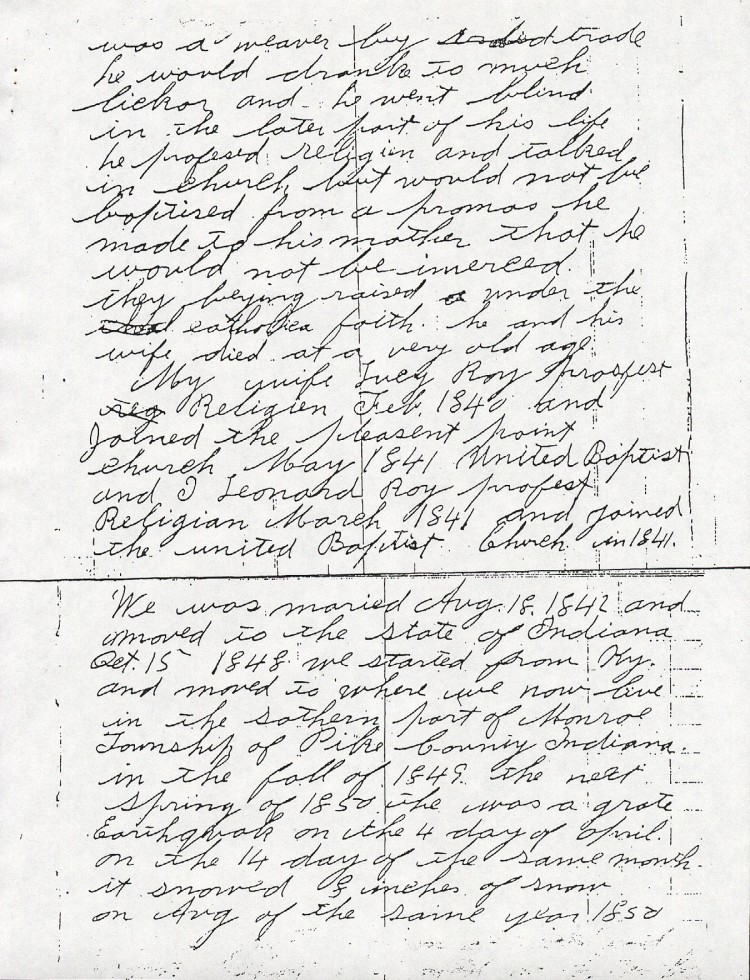 was a weaver by trade
he would dranke to much
lickor and he went blind
in the later part of his life
he profesed religien and talked
in church but would not be
baptised from a promas he
made to his mother that he
would not be imerced.
they beying raised a under the
catholica faith. he and his
wife died at a very old age
My wife Lucy Roy profest
reg Religien Feb. 1840 and
Joined the pleasent point
church May 1841 United Baptist
and I Leonard Roy profest
Religian March 1841 and joined
the united Baptist Church in 1841.
We was maried Aug. 18. 1842 and
moved to the state of Indiana
Oct. 15 1848 we started from Ky.
and moved to where we now live
in the sothern part of Monroe
Township of Pike County Indiana.
in the fall of 1849. the next
spring of 1850 the was a grate
Earthquak on the 4 day of April.
on the 14 day of the same month.
it snowed inches of snow
on Avg of the same year 1850